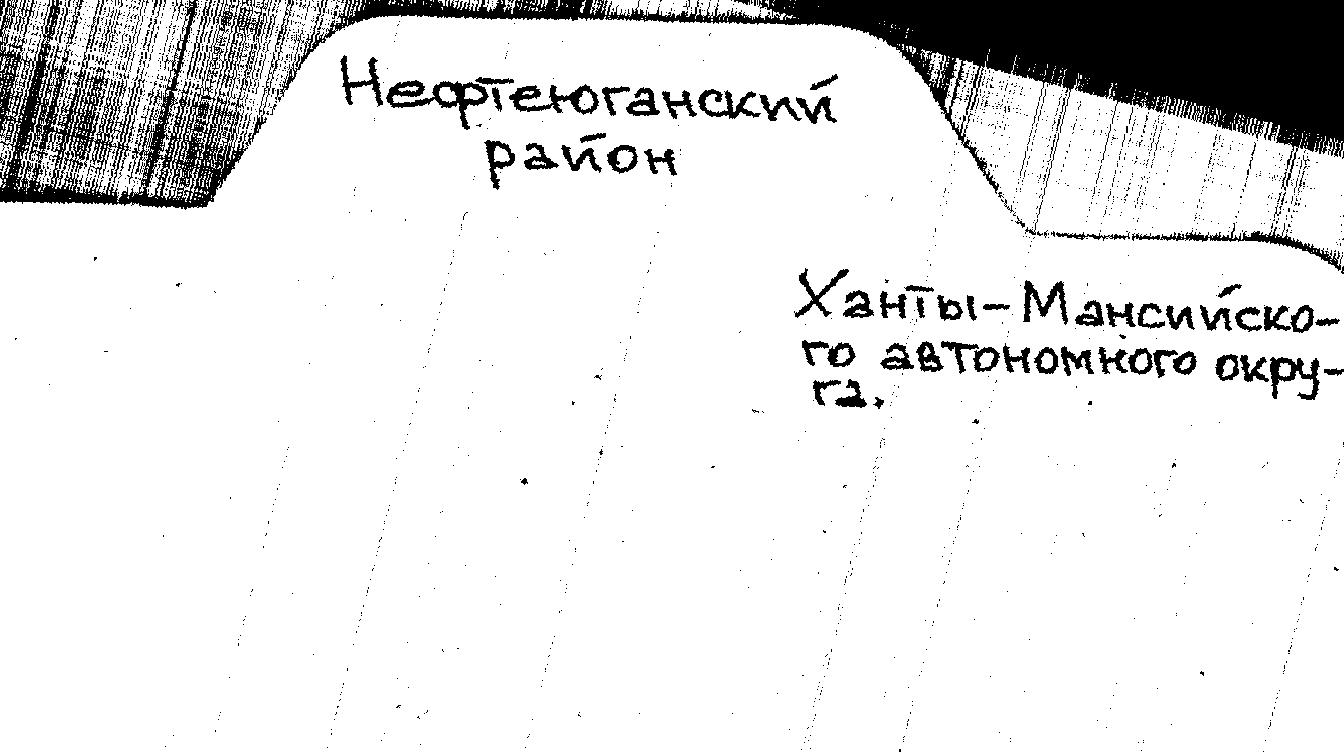 Нефтеюганский
район
Ханты-Мансийско-
го автономного окру-
га.